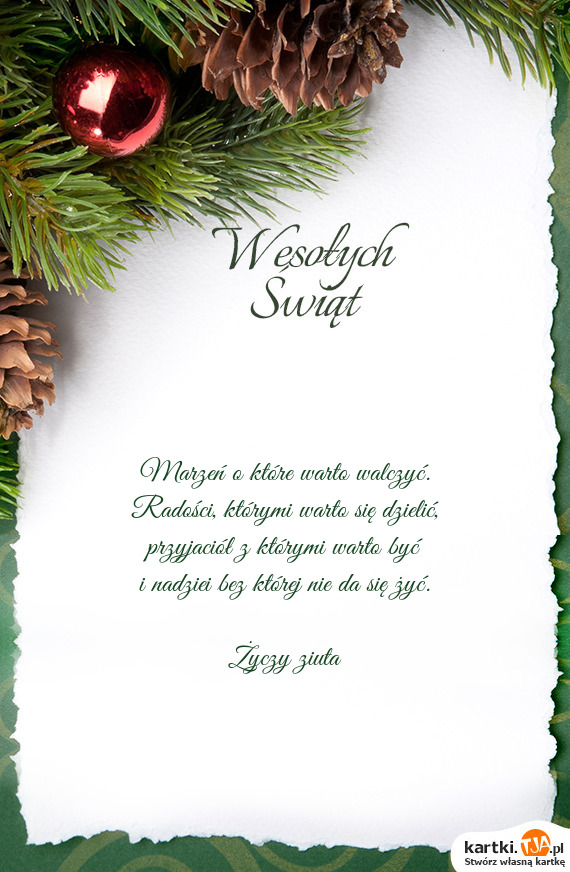 Wesołych
Świąt
Marzeń o które warto walczyć.
Radości, którymi warto się dzielić,
przyjaciół z którymi warto być
i nadziei bez której nie da się żyć.
Życzy ziuta
kartki.TJA.pl
Stwórz własną kartkę